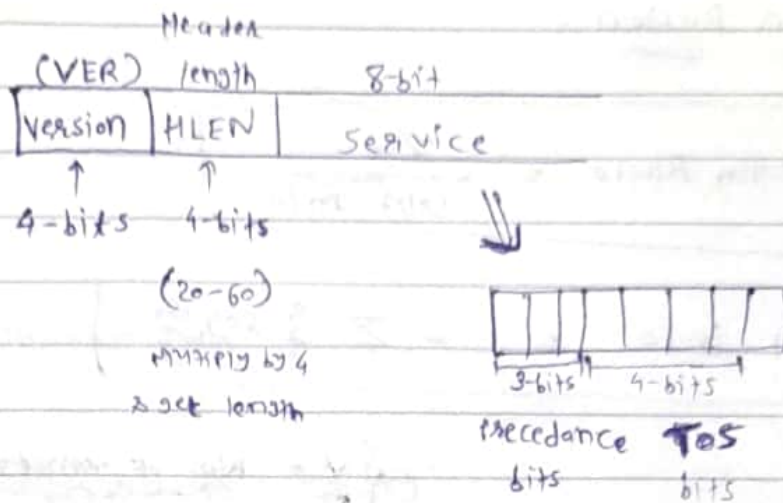 Header
(VER) length 8-bit
Version HLEN Service
4-bits 4-bits
(20-60)
multiply by 4
& get length
3-bits 4-bits
precedance TOS
bits bits